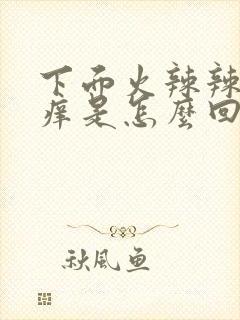 下面火辣辣
痒是怎麼回
秋風鱼